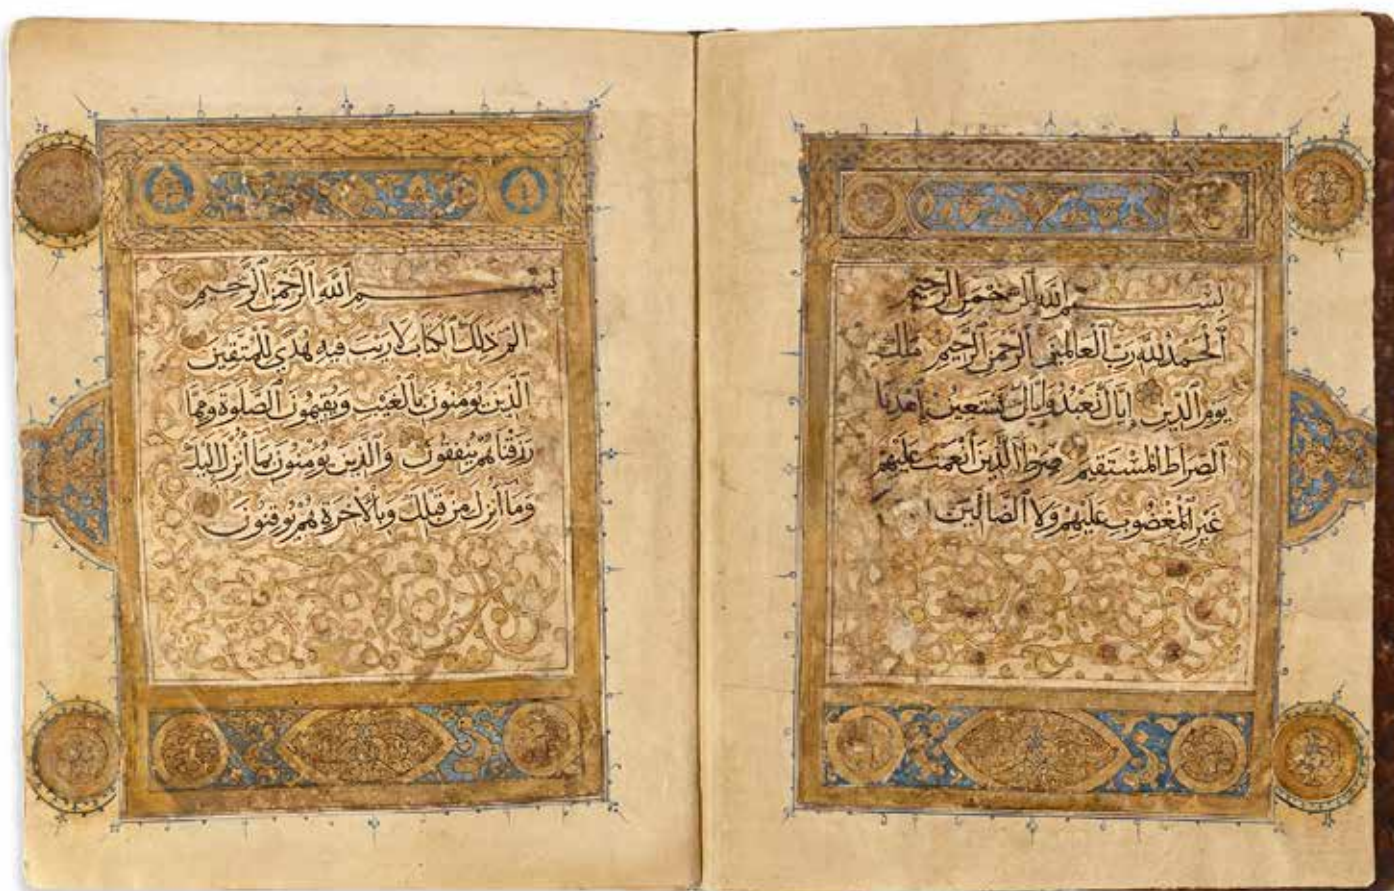 بِسْمِ ٱللَّهِ ٱلرَّحْمَٰنِ ٱلرَّحِيمِ
ٱلْحَمْدُ لِلَّهِ رَبِّ ٱلْعَالَمِينَ ٱلرَّحْمَٰنِ ٱلرَّحِيمِ مَٰلِكِ
يَوْمِ ٱلدِّينِ إِيَّاكَ نَعْبُدُ وَإِيَّاكَ نَسْتَعِينُ ٱهْدِنَا
ٱلصِّرَاطَ ٱلْمُسْتَقِيمَ صِرَٰطَ ٱلَّذِينَ أَنْعَمْتَ عَلَيْهِمْ
غَيْرِ ٱلْمَغْضُوبِ عَلَيْهِمْ وَلَا ٱلضَّالِّينَ
بِسْمِ ٱللَّهِ ٱلرَّحْمَٰنِ ٱلرَّحِيمِ
الم ذَٰلِكَ ٱلْكِتَابُ لَا رَيْبَ فِيهِ هُدًى لِلْمُتَّقِينَ
ٱلَّذِينَ يُؤْمِنُونَ بِٱلْغَيْبِ وَيُقِيمُونَ ٱلصَّلَوٰةَ وَمِمَّا
رَزَقْنَاهُمْ يُنْفِقُونَ وَٱلَّذِينَ يُؤْمِنُونَ بِمَا أُنْزِلَ إِلَيْكَ
وَمَا أُنْزِلَ مِنْ قَبْلِكَ وَبِٱلْآخِرَةِ هُمْ يُوقِنُونَ